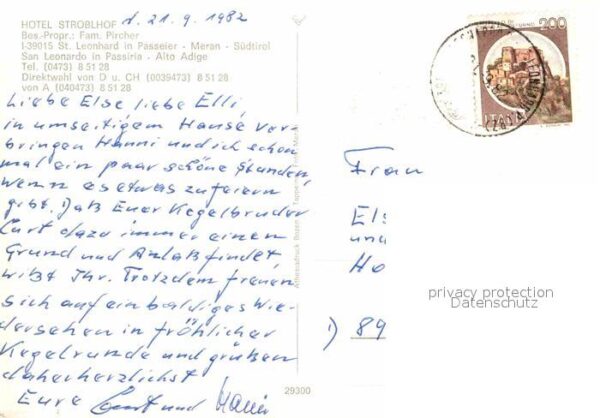 d. 21.9.1982
HOTEL STROBLHOF
Bes.-Propr.: Fam. Pircher
I-39015 St. Leonhard in Passeier - Meran - Südtirol
San Leonardo in Passiria - Alto Adige
Tel. (0473) 8 51 28
Direktwahl von D u. CH (0039473) 8 51 28
von A (040473) 8 51 28
Liebe Else liebe Elli,
in umseitigem Hause ver-
bringen Hanni und ich schon
mal ein paar schöne Stunden,
wenn es etwas zu feiern
gibt. Daß Euer Kegelbruder
Curt dazu immer einen
Grund und Anlaß findet
wißt Ihr. Trotzdem freuen
sich auf ein baldiges Wie-
dersehen in fröhlicher
Kegelrunde und grüßen
daher herzlichst
Eure Curt und Hanni
29300
200
ITALIA
Frau
Els
und
Ho
1) 89
privacy protection
Datenschutz